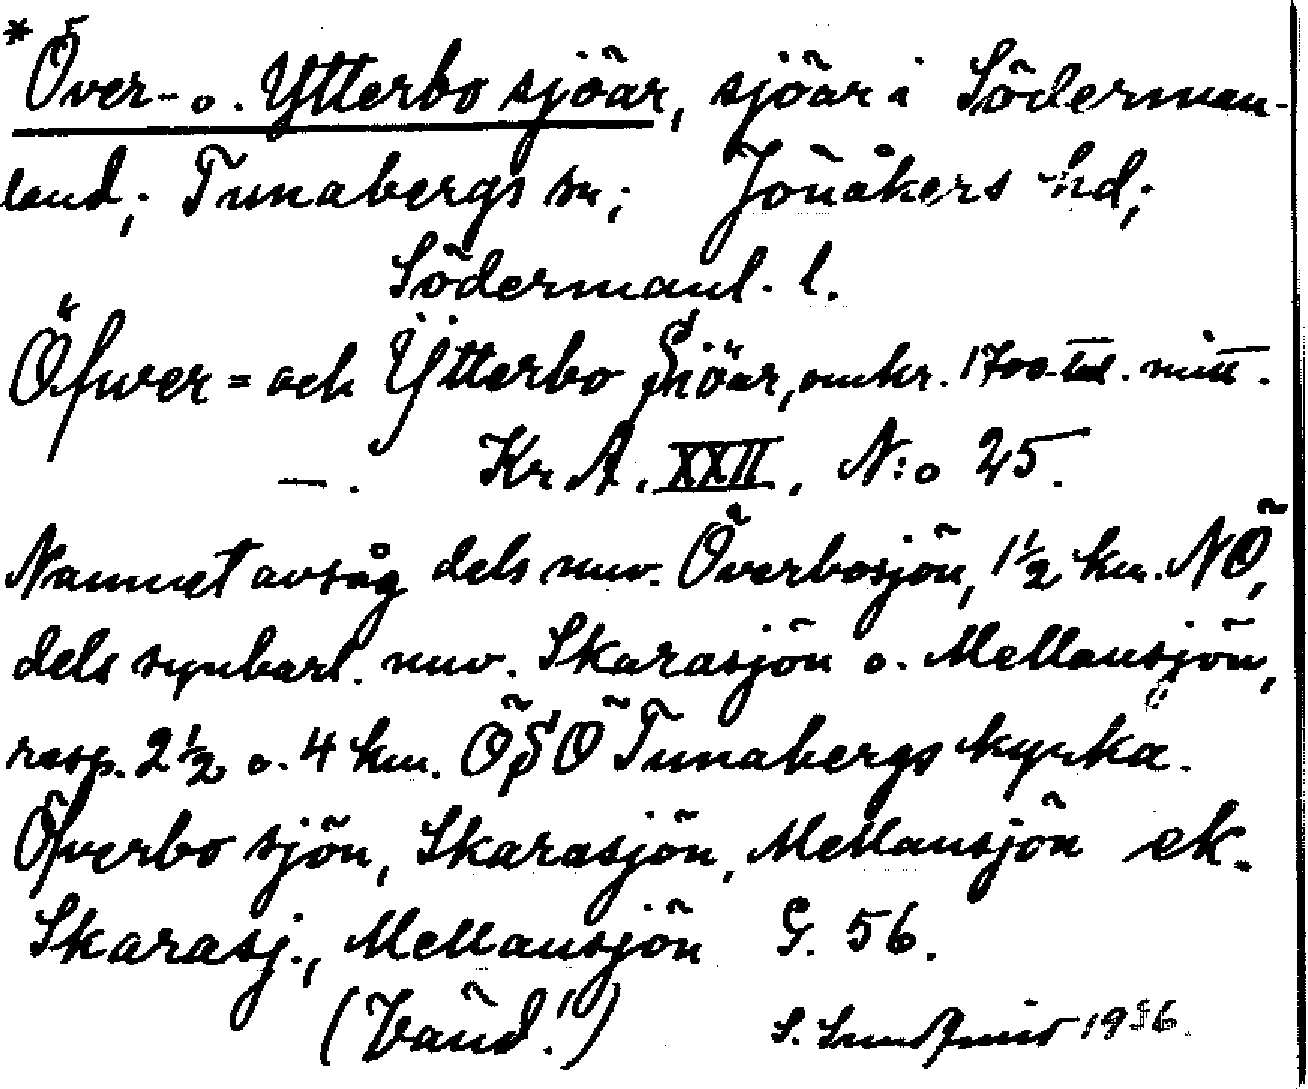 *Över- o. Ytterbo sjöar, sjöar i Söderman-
land; Tunabergs sn; Jönåkers hd;
Södermanl. l.
Öfwer= och Ÿtterbo Siöar, omkr. 1700-tal. mitt.
—. Kr. A. XXII, N:o 25.
Namnet avsåg dels nuv. Överbosjön, 1½ km. NÖ,
dels synbarl. nuv. Skarasjön o. Mellansjön,
resp. 2½ o. 4 km. ÖSÖ Tunabergs kyrka.
Öfverbo sjön, Skarasjön, Mellansjön ek.
Skarasj., Mellansjön G. 56.
(Vänd!) S. 1936.